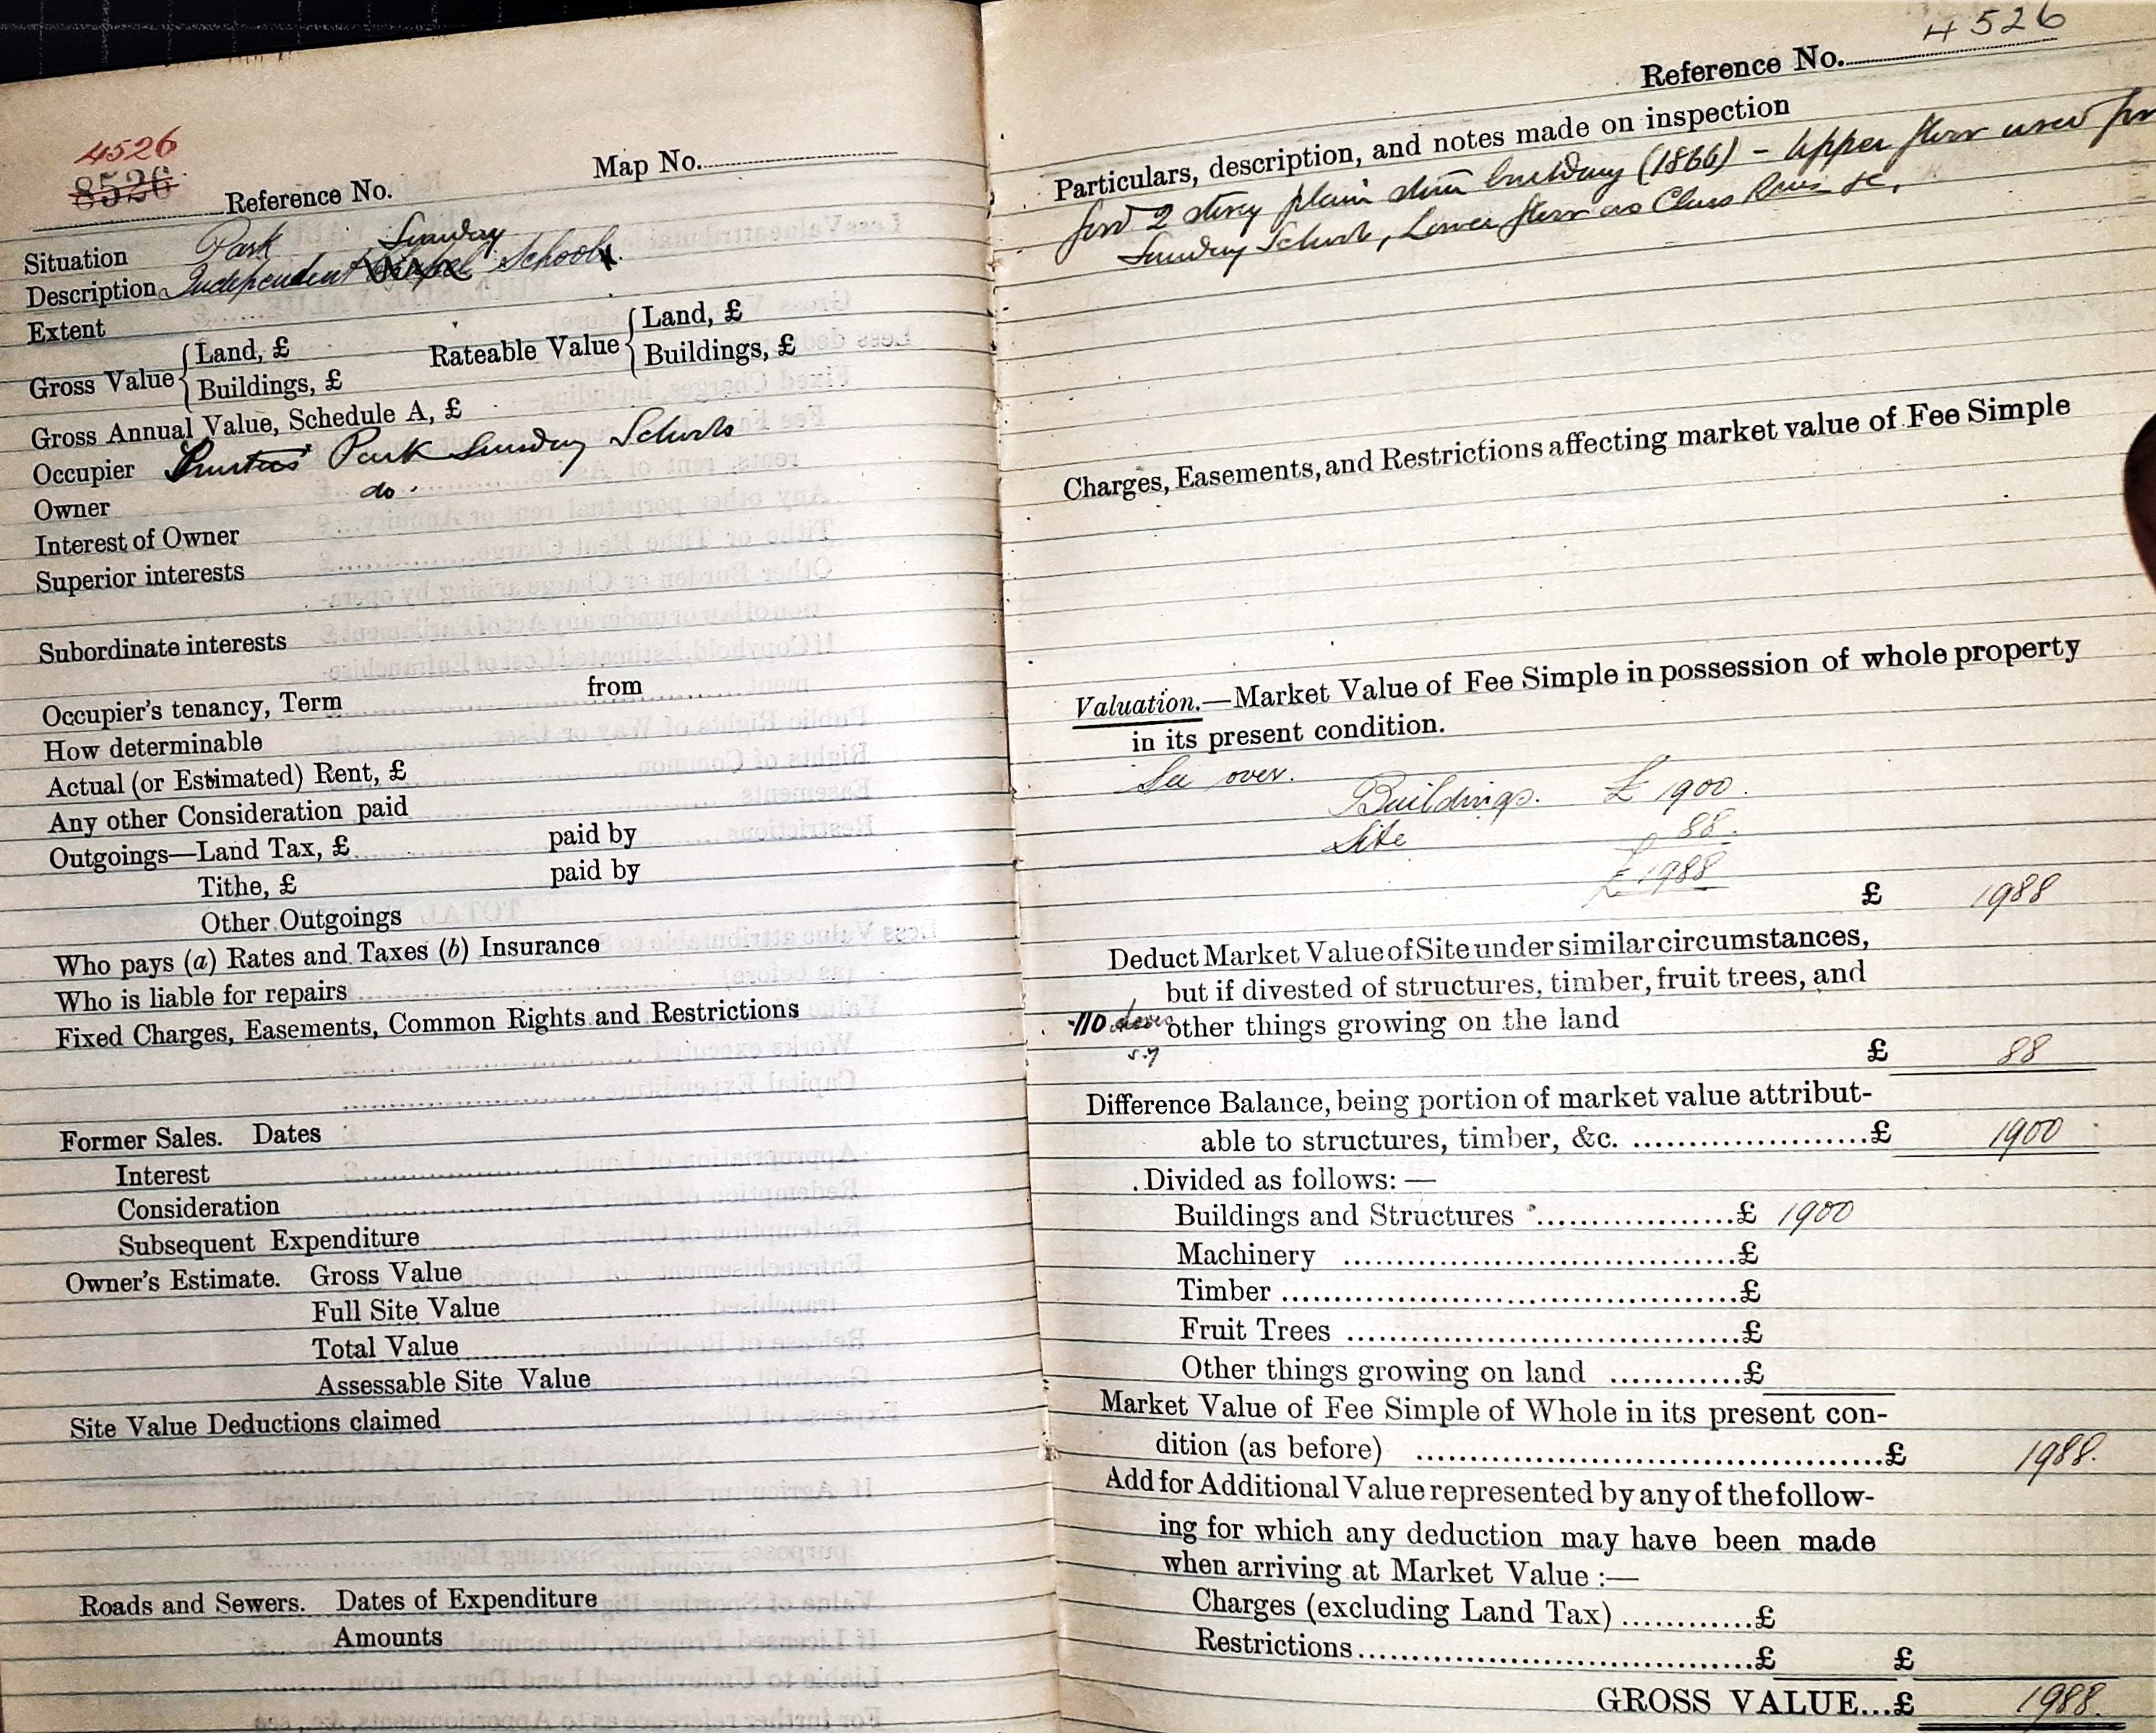 4526
8526
Reference No.
Map No.
Situation Park
Sunday
Description Independent Chapel School
Extent
Gross Value { Land, £
Buildings, £
Rateable Value { Land, £
Buildings, £
Gross Annual Value, Schedule A, £
Occupier Trustees' Park Sunday Schools
Owner do.
Interest of Owner
Superior interests
Subordinate interests
Occupier's tenancy, Term from
How determinable
Actual (or Estimated) Rent, £
Any other Consideration paid
Outgoings—Land Tax, £ paid by
Tithe, £ paid by
Other Outgoings
Who pays (a) Rates and Taxes (b) Insurance
Who is liable for repairs
Fixed Charges, Easements, Common Rights and Restrictions
Former Sales. Dates
Interest
Consideration
Subsequent Expenditure
Owner's Estimate. Gross Value
Full Site Value
Total Value
Assessable Site Value
Site Value Deductions claimed
Roads and Sewers. Dates of Expenditure
Amounts
Reference No. 4526
Particulars, description, and notes made on inspection
Good 2 storey plain stone building (1866) - Upper floor used for
Sunday School, Lower floor as Class Rooms &c.
Charges, Easements, and Restrictions affecting market value of Fee Simple
Valuation.—Market Value of Fee Simple in possession of whole property
in its present condition.
See over.
Buildings. £ 1900.
Site 88.
£ 1988
£ 1988
Deduct Market Value of Site under similar circumstances,
but if divested of structures, timber, fruit trees, and
110 other things growing on the land
s.y
£ 88
Difference Balance, being portion of market value attribut-
able to structures, timber, &c. ........................£ 1900
Divided as follows:—
Buildings and Structures ....................£ 1900
Machinery ........................................£
Timber ..............................................£
Fruit Trees ........................................£
Other things growing on land ............£
Market Value of Fee Simple of Whole in its present con-
dition (as before) ................................................£ 1988.
Add for Additional Value represented by any of the follow-
ing for which any deduction may have been made
when arriving at Market Value :—
Charges (excluding Land Tax) ............£
Restrictions..........................................£ £
GROSS VALUE...£ 1988.